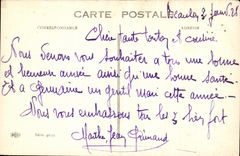 CARTE POSTALE
3 Janv 28
CORRESPONDANCE
Chère tante et cousine
Nous venons vous souhaiter a tous une bonne
et heureuse année ainsi qu'une bonne santé
Et a Germaine un gentil mari cette année —
Nous vous embrassons tous les 3 bien fort
Marthe Jean